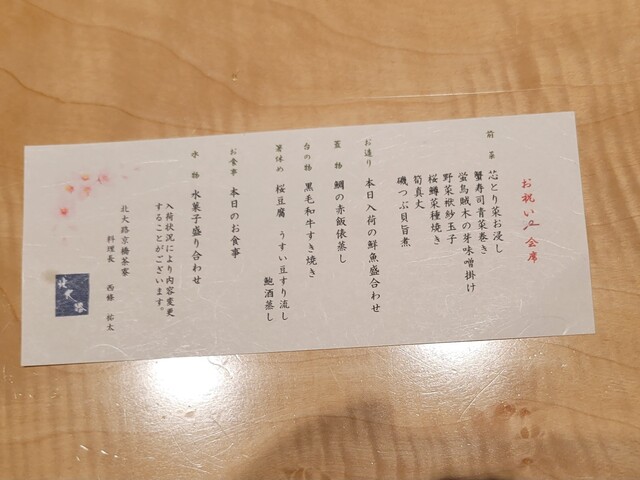 お祝い会席
前菜 芯とり菜お浸し
蟹寿司青菜巻き
蛍烏賊木の芽味噌掛け
野菜袱紗玉子
桜鱒菜種焼き
筍真丈
磯つぶ貝旨煮
お造り 本日入荷の鮮魚盛合わせ
蓋物 鯛の赤飯俵蒸し
台の物 黒毛和牛すき焼き
箸休め 桜豆腐 うすい豆すり流し
鮑酒蒸し
お食事 本日のお食事
水物 水菓子盛り合わせ
入荷状況により内容変更
することがございます。
北大路京橋茶寮
料理長 西條 祐太
北大路